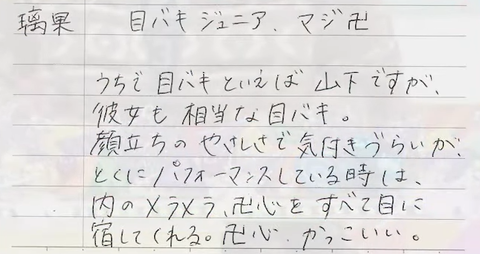 璃果 目バキジュニア、マジ卍
うちで目バキといえば山下ですが、
彼女も相当な目バキ。
顔立ちのやさしさで気付きづらいが、
とくにパフォーマンスしている時は、
内のメラメラ、卍心をすべて目に
宿してくれる。卍心、かっこいい。